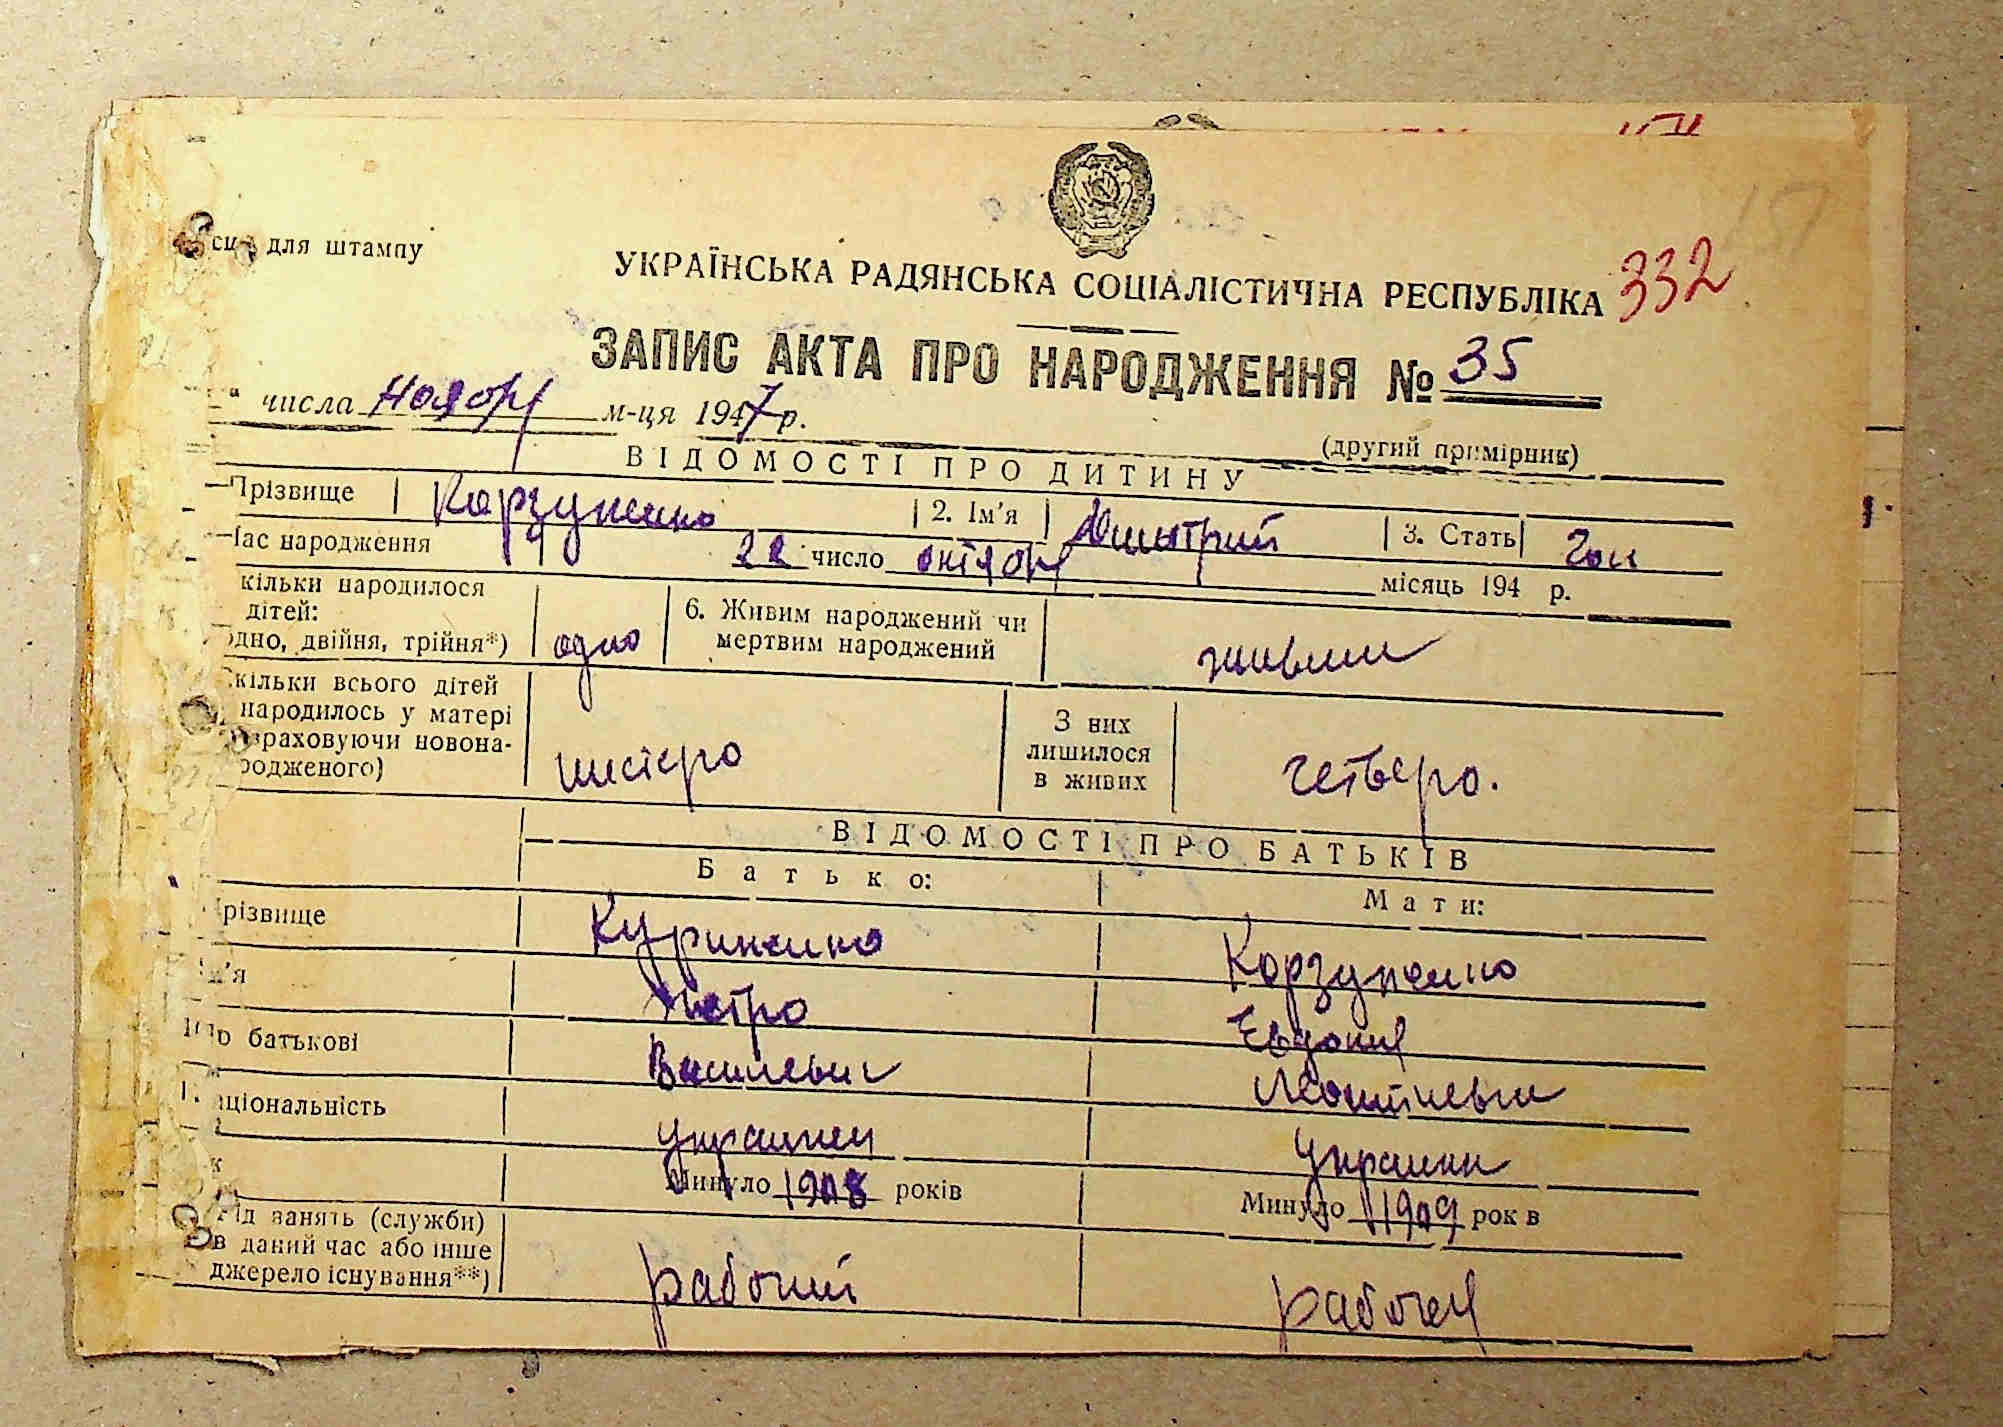 для штампу
УКРАЇНСЬКА РАДЯНСЬКА СОЦІАЛІСТИЧНА РЕСПУБЛІКА 332
ЗАПИС АКТА ПРО НАРОДЖЕННЯ № 35
числа м-ця 1947 р.
(другий примірник)
ВІДОМОСТІ ПРО ДИТИНУ
Прізвище Корзуненко 2. Ім'я Дмитрий 3. Стать
Час народження 22 число октябр місяць 194 р.
кільки народилося
дітей:
одно, двійня, трійня*) одно
6. Живим народжений чи
мертвим народжений живим
кільки всього дітей
народилось у матері
враховуючи новона-
родженого) шестеро
З них
лишилося
в живих четверо.
ВІДОМОСТІ ПРО БАТЬКІВ
Батько: Мати:
різвище Куриненко Корзуненко
м'я Петро Евдокия
по батькові Васильевич Леонтиевна
аціональність украинец украинка
к Минуло 1908 років Минуло 1909 років
Рід занять (служби)
в даний час або інше
джерело існування**) рабочий рабочая